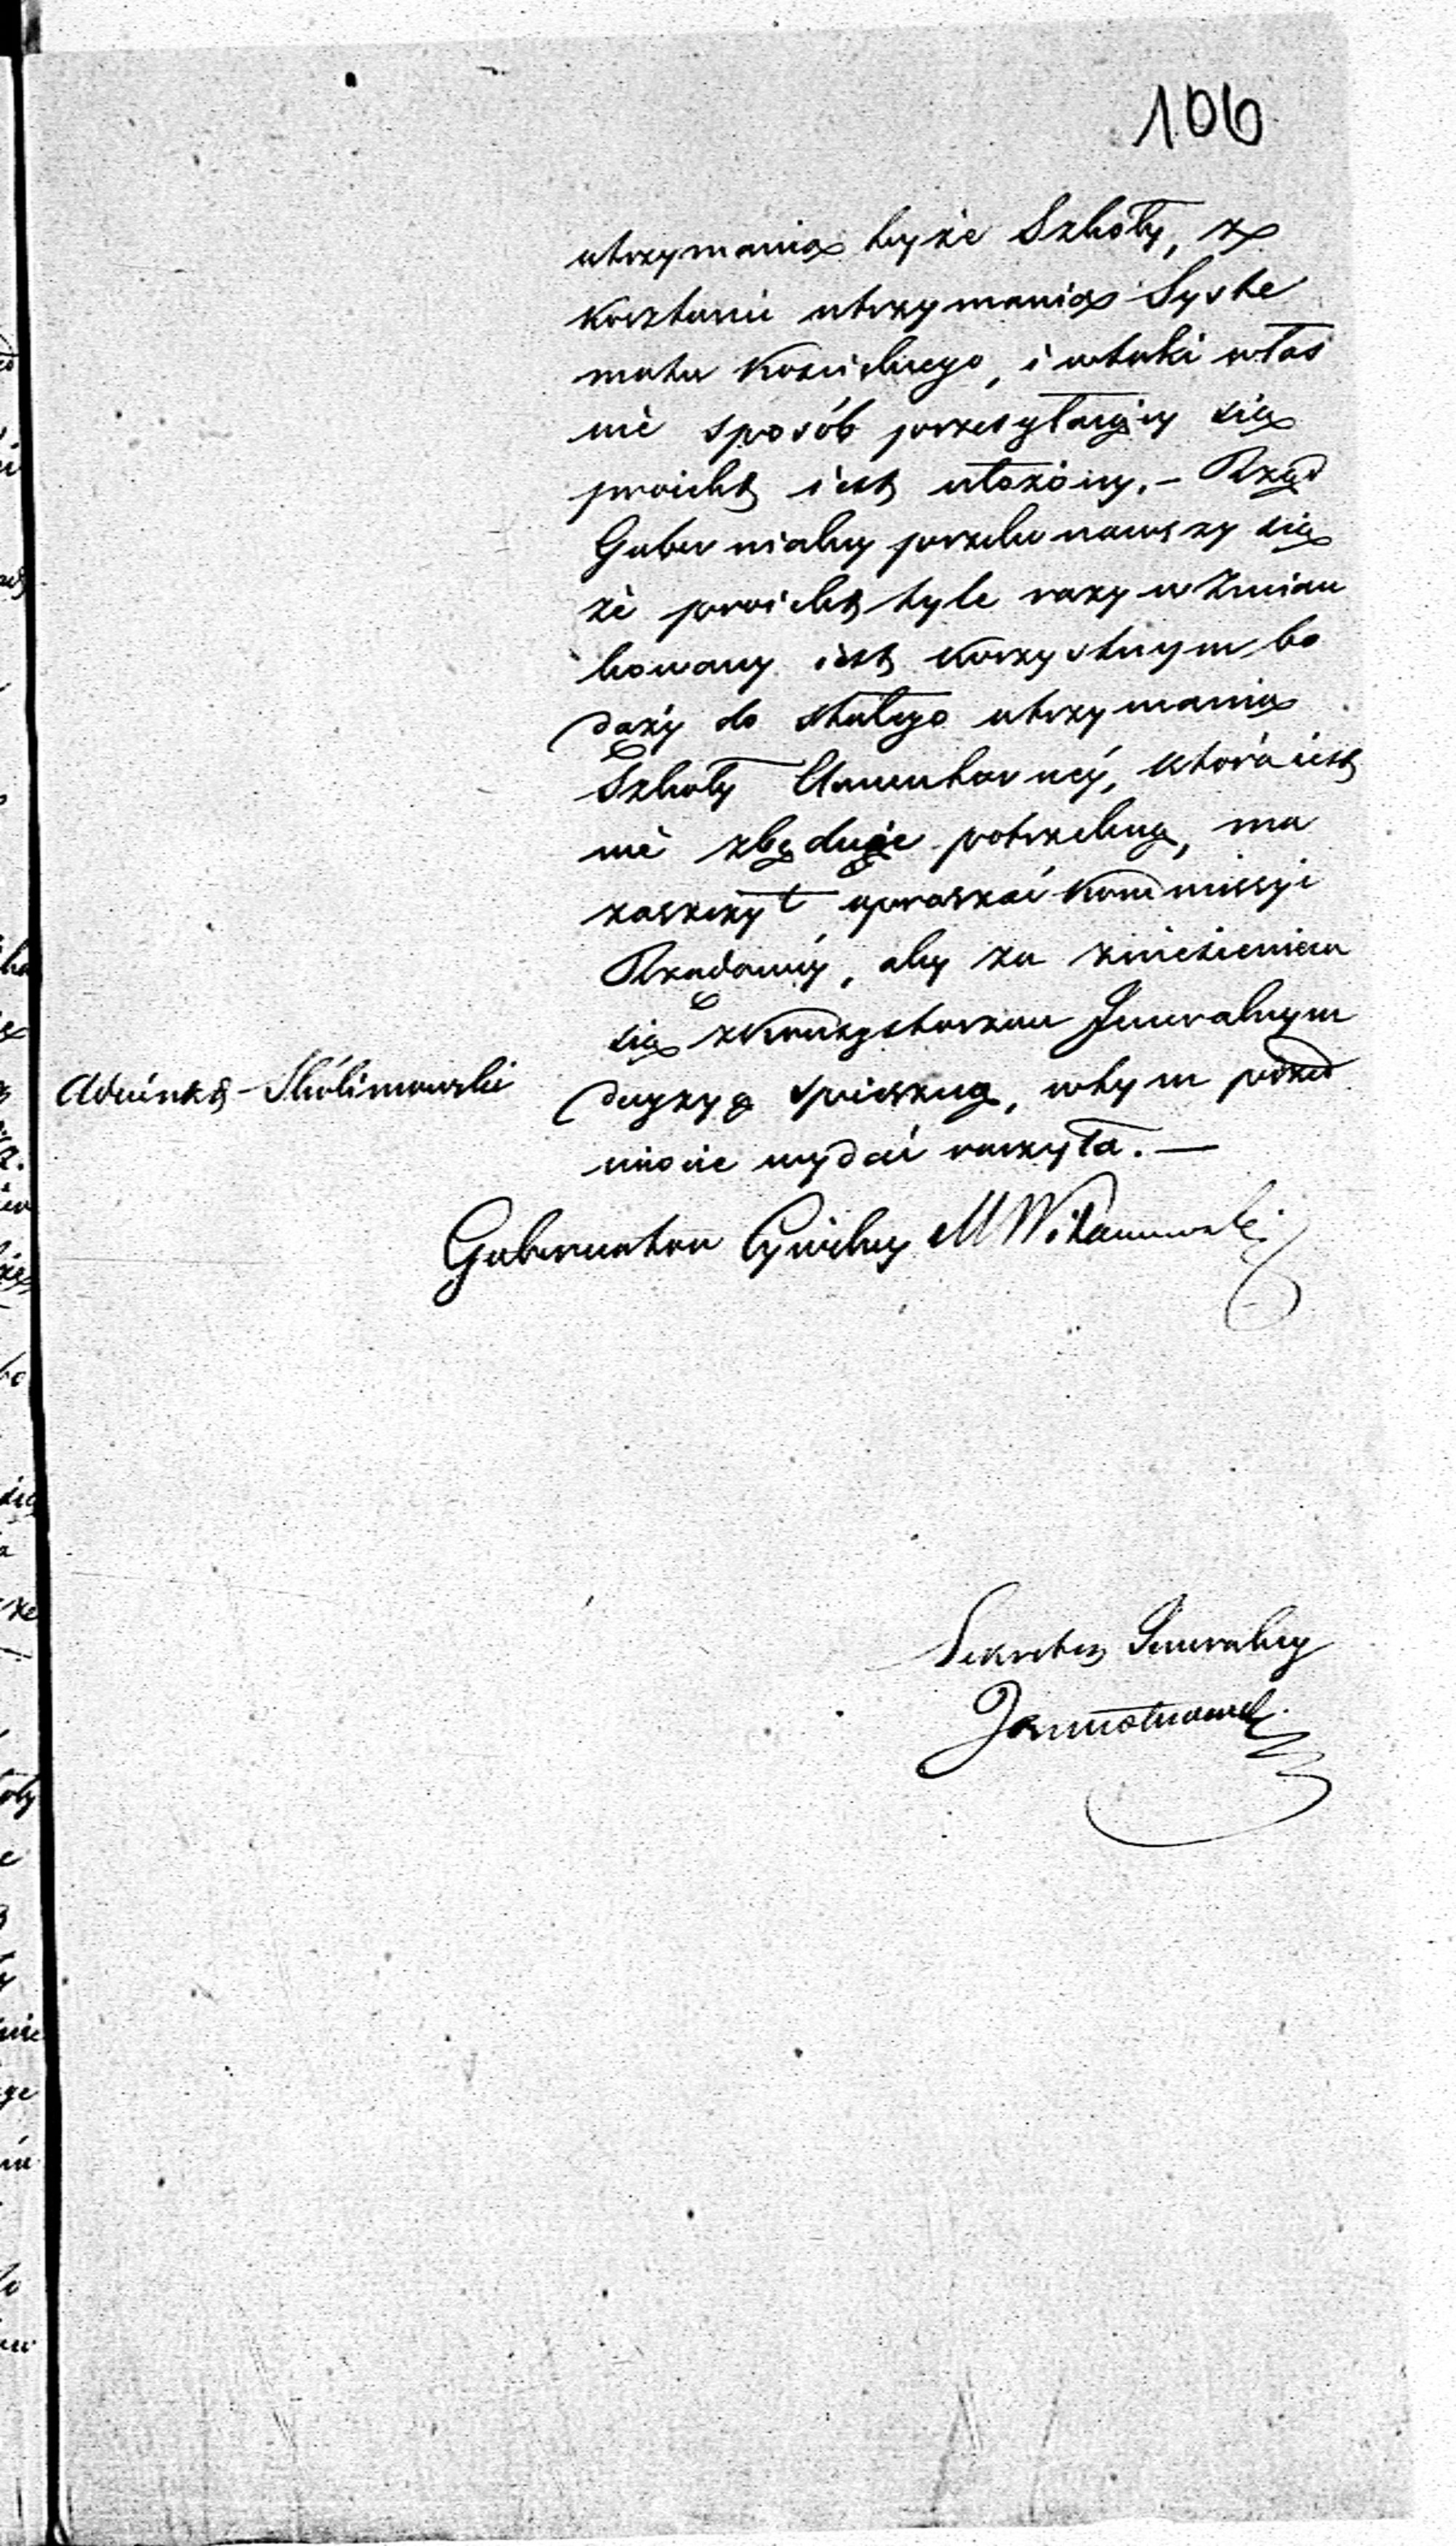 106
utrzymania tyże Szkoły, z
kosztami utrzymania Syste
matu Kościelnego, i wtaki właś
nie sposób przesyłaiący się
proiekt iest ułożóny. – Rząd
Gubernialny przekonawszy się
że proiekt tyle razy wzmian
kowany iest korzystnym bo
dąży do stałego utrzymania
Szkoły Elementarnéy, która iest
nie zbędnie potrzebną, ma
zaszczyt upraszać Kommissyi
Rządowéy, aby za zniesieniem
się z Konsystorzem Jeneralnym
decyzyą spieszną, wtym przed
miocie wydać raczyła. —
Skólimowski
Gubernator Cywilny
Sekretarz Jeneralny